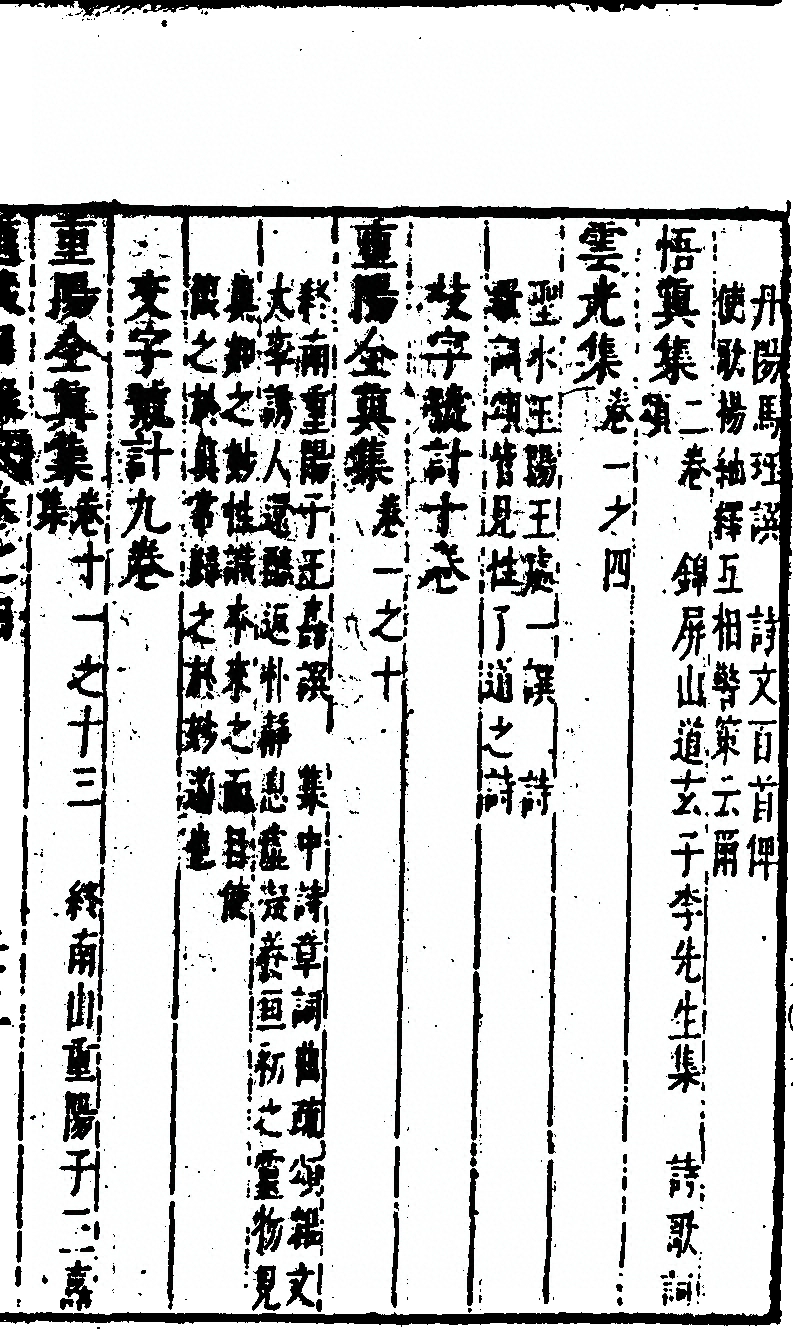 丹陽馬珏譔　詩文百首俾
使歌揚紬繹互相警策云爾
悟眞集二卷　錦屏山道玄子李先生集　詩歌詞
頌
雲光集卷一之四
聖水王陽王處一譔　詩
歌詞頌皆見性了道之詩
枝字號計十卷
重陽全眞集卷一之十
終南重陽子王嚞譔　集中詩章詞曲疏頌雜文
大率誘人還醇返朴靜息虛凝養亘初之靈物見
眞如之妙性識本來之面目使
復之於眞常歸之於妙道也
交字號計九卷
重陽全眞集卷十一之十三　終南山重陽子王嚞
集